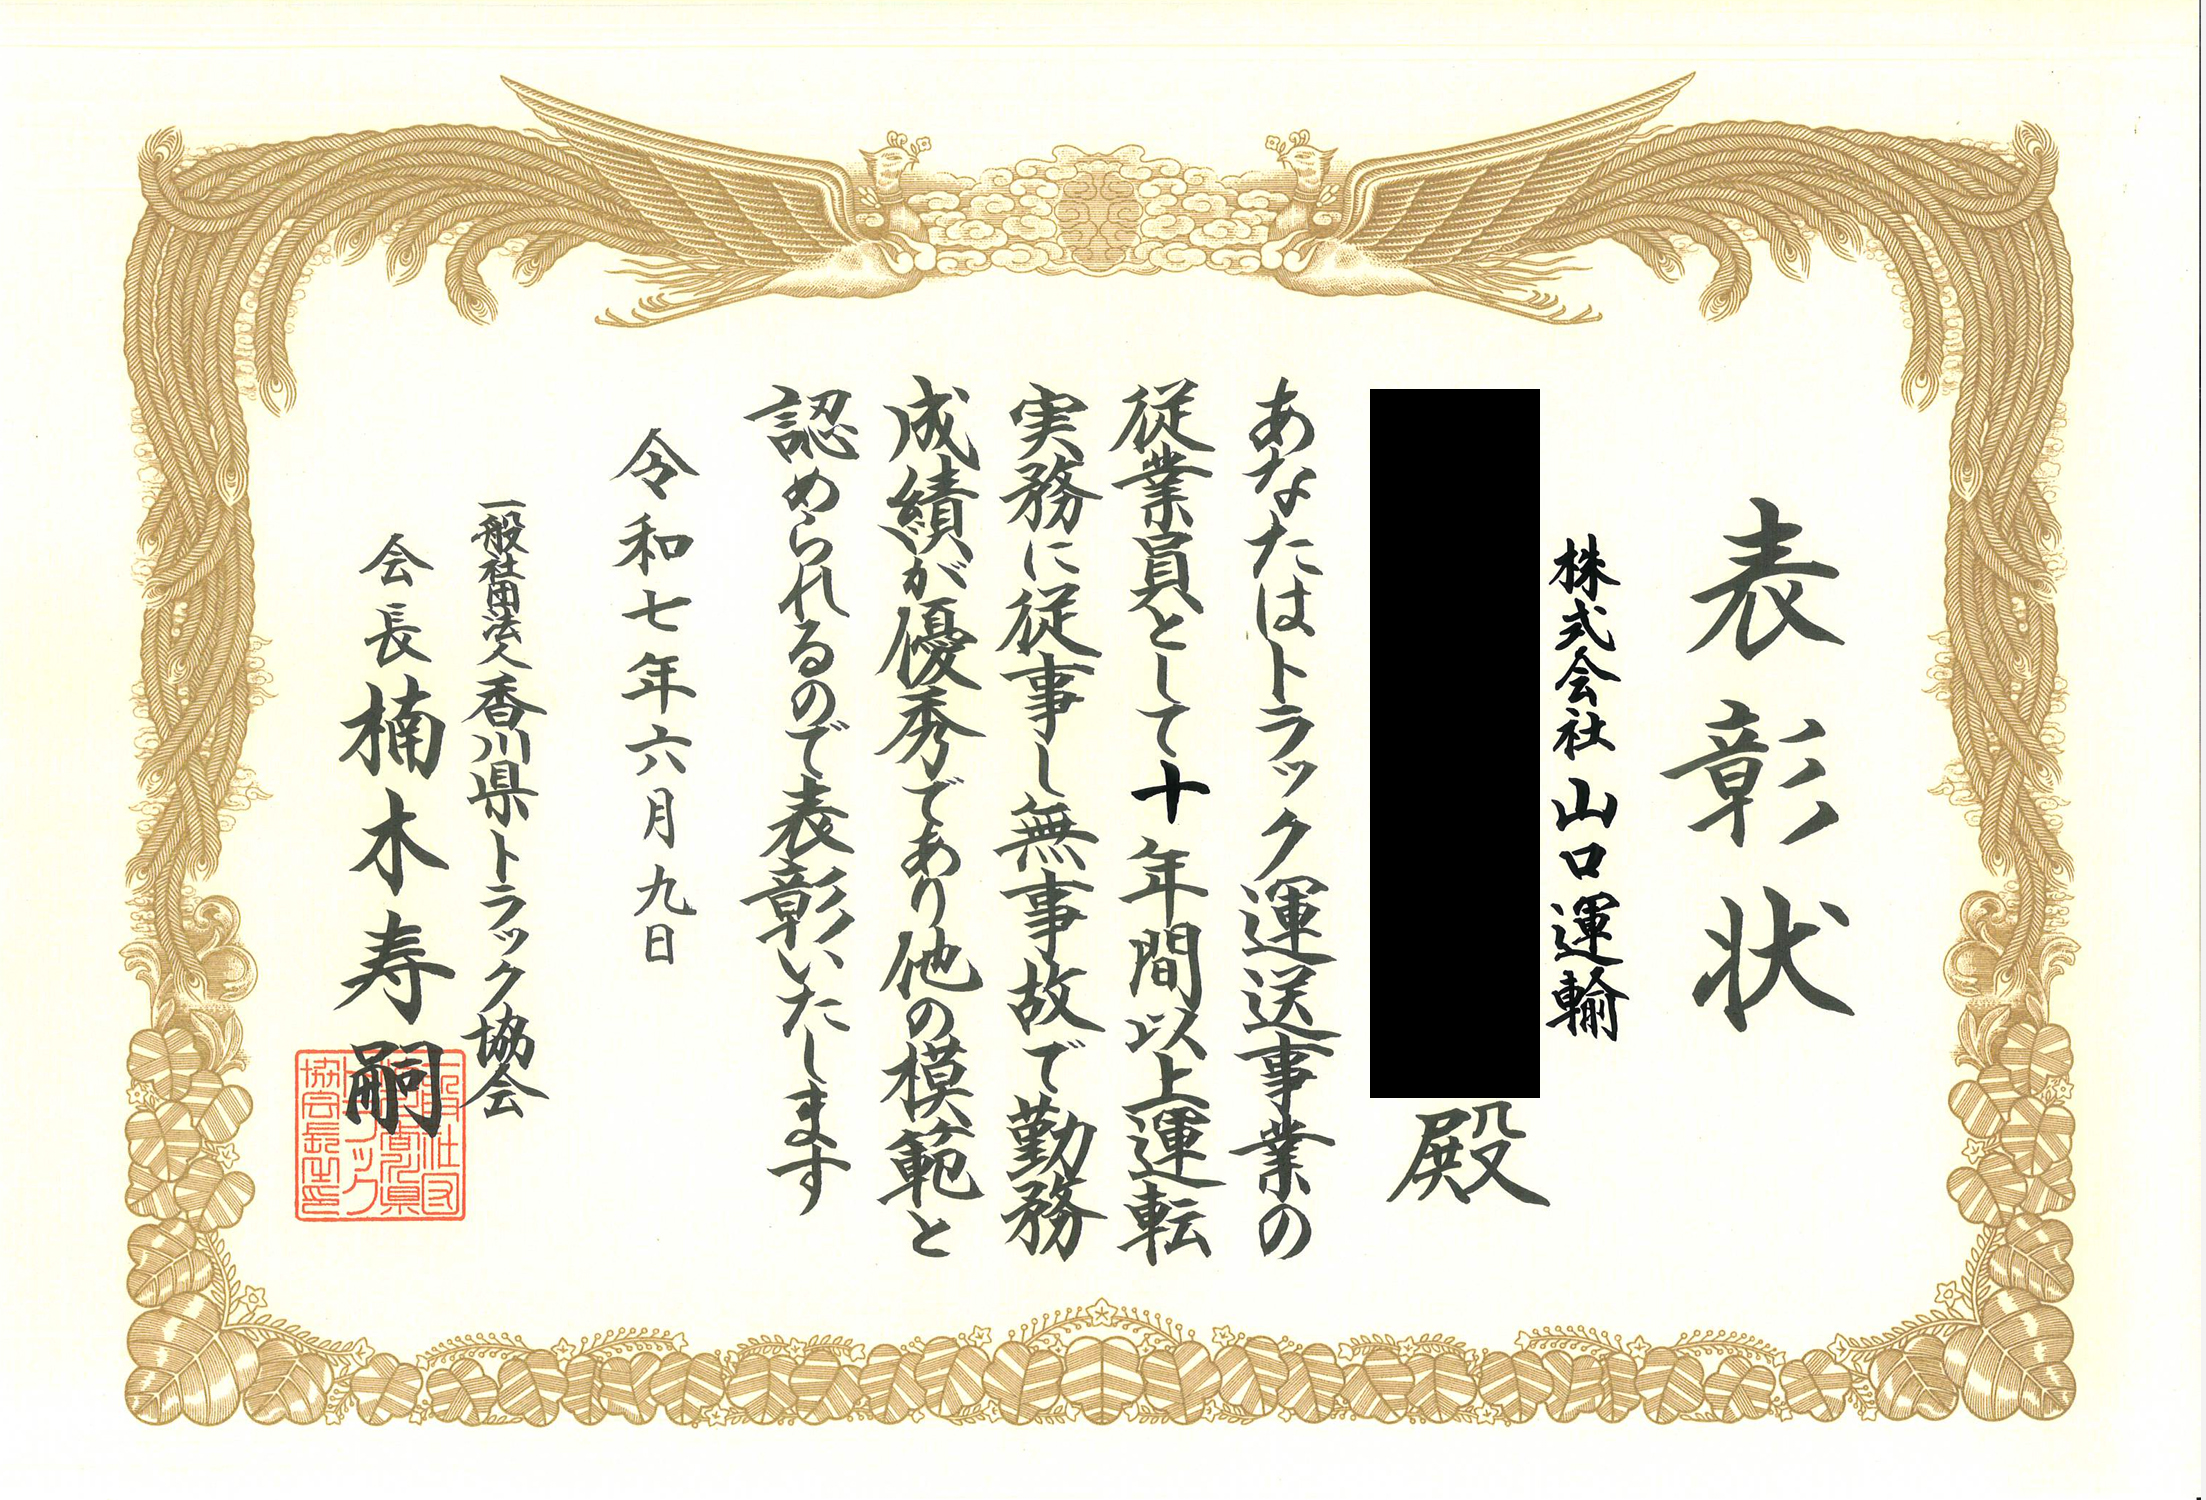 表彰状
株式会社山口運輸
殿
あなたはトラック運送事業の
従業員として十年間以上運転
実務に従事し無事故で勤務
成績が優秀であり他の模範と
認められるので表彰いたします
令和七年六月九日
一般社団法人香川県トラック協会
会長楠木寿嗣
一般社団
法人香川県
トラック
協会長之印